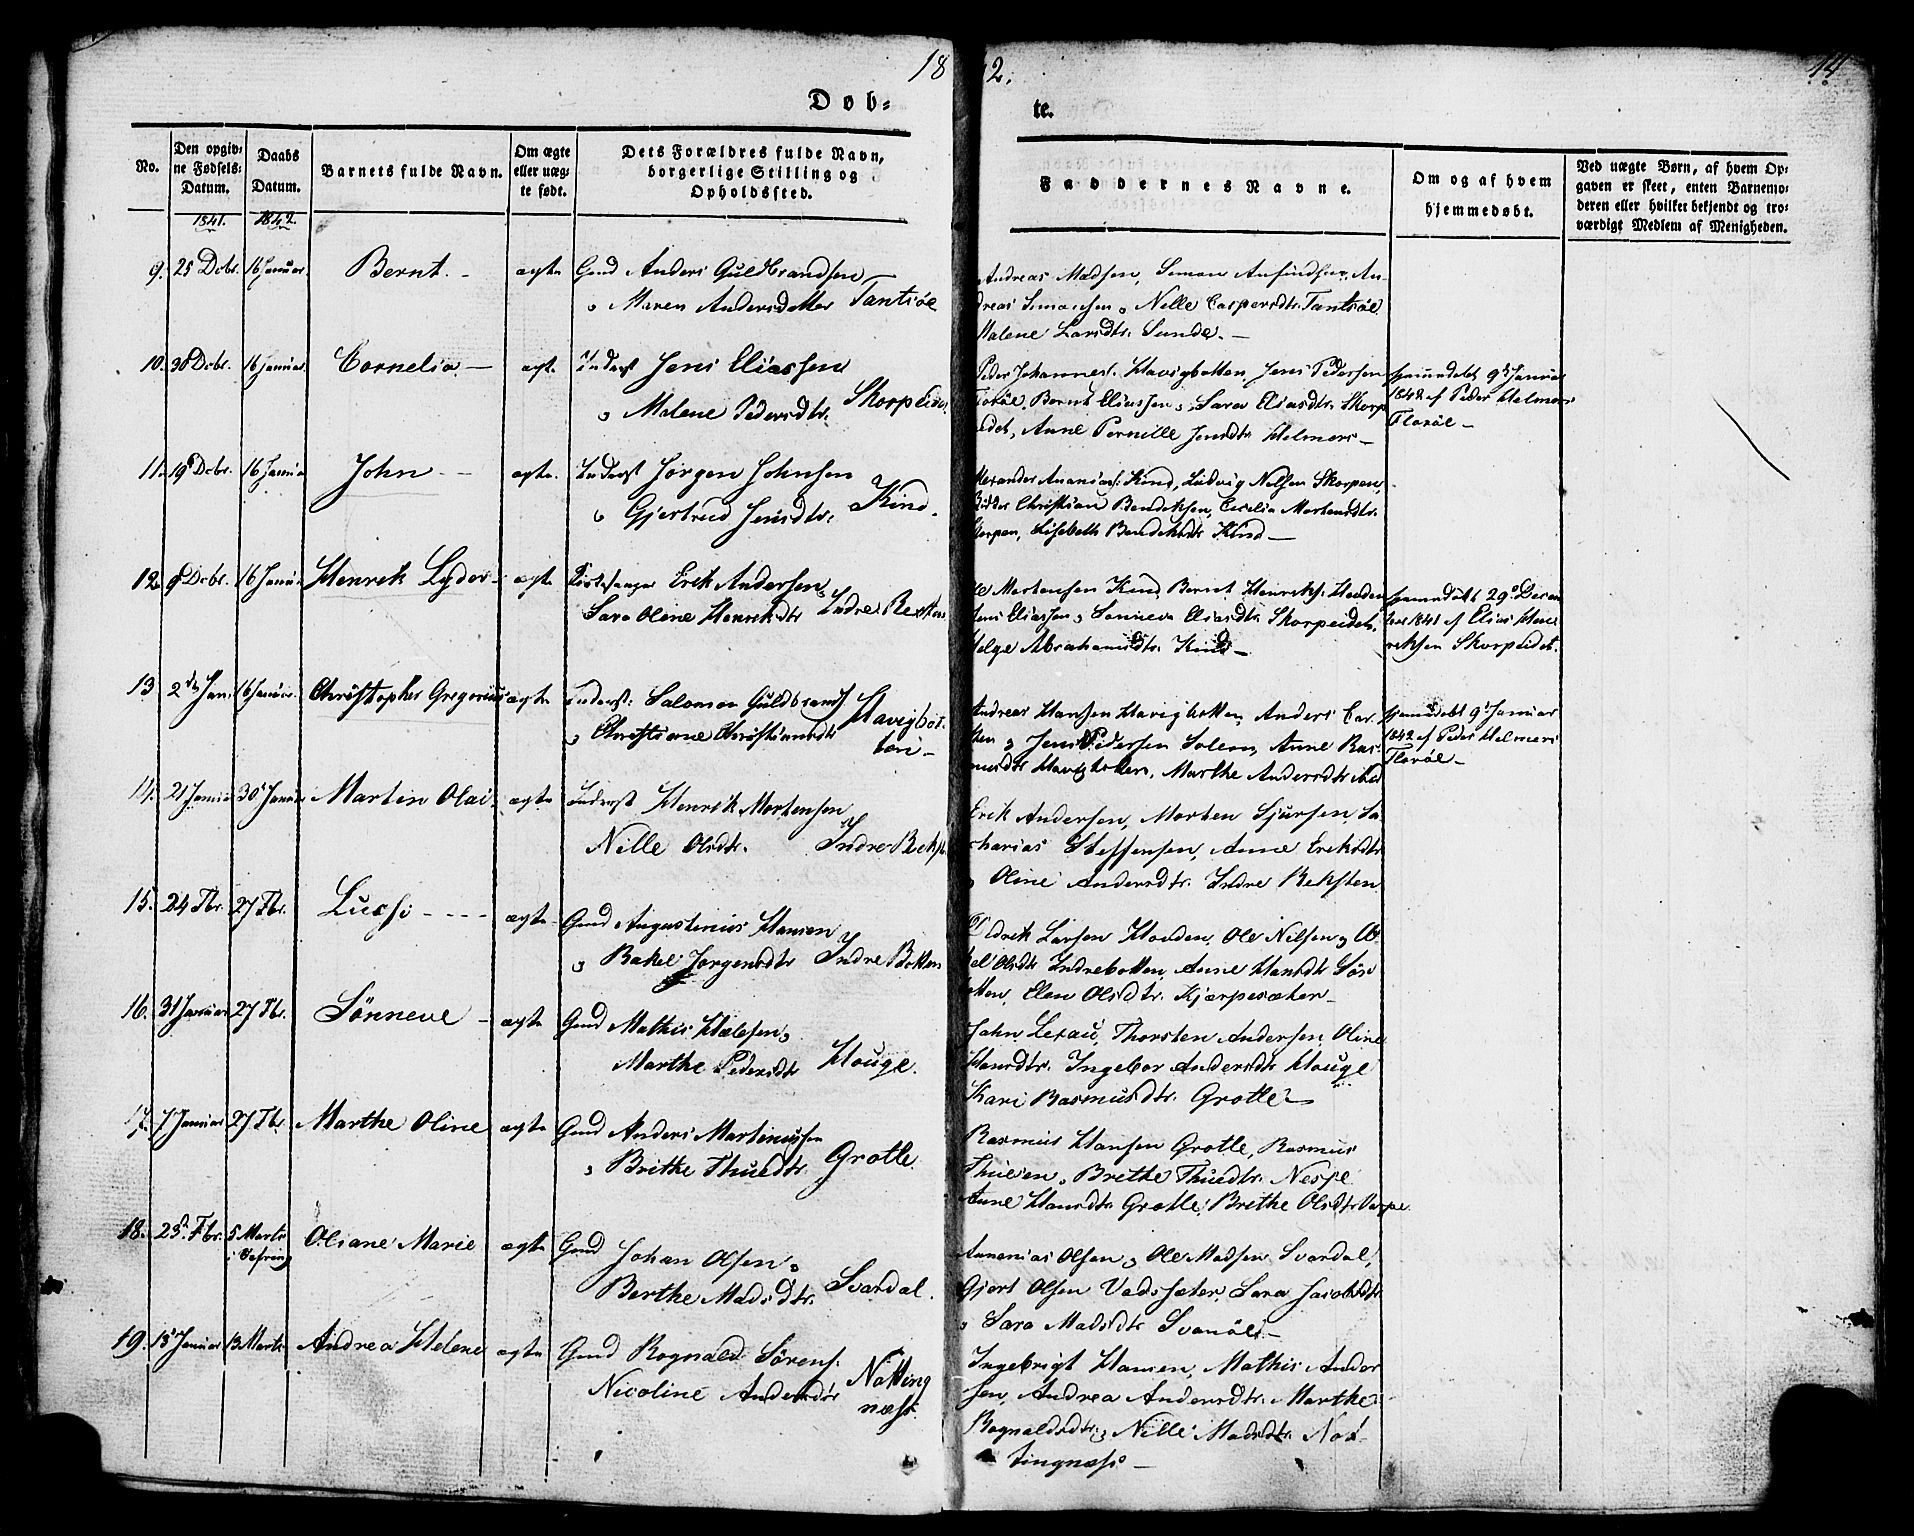 18
2.
14
Døb=
te.
No.
Den opgiv=
ne Fødsels=
Datum.
Daabs
Datum.
Barnets fulde Navn.
Om ægte
eller uæg=
te født.
Dets Forældres fulde Navn,
borgerlige Stilling og
Opholdssted.
Faddernes Navne.
Om og af hvem
hjemmedøbt.
Ved uægte Børn, af hvem Op=
gaven er skeet, enten Barnemo=
deren eller hvilket bekjendt og tro=
værdigt Medlem af Menigheden.
1841.
1842.
9. 25 Dcbr. 16 Januar. Bernt. - ægte Gmd Anders Guldbrandsen
Maren Andersdatter Tansøe
Andreas Madsen, Simon Anfindsen, An-
dreas Simonsen, Nille Caspersdtr. Tansøe
Malene Larsdtr. Sunde. -
10. 30 Dcbr. 16 Januar. Cornelia. - ægte Inderst Jens Eliassen
Malene Pedersdtr. Skorpeidet
Peder Johannes. Havigbotten, Jens Pedersen
Florøe, Bernt Eliassen, Sara Eliasdtr. Skorp
eidet, Anne Pernille Jensdtr. Helmers -
hjemmedøbt 9 Januar
1842 af Peder Helmers
Florøe -
11. 19 Dcbr. 16 Januar John - ægte. Inderst Jørgen Johnsen
Gjertrud Jensdtr. Kind.
Alexander Ananias. Kind, Ludvig Nilsen Skorpen,
Christian Bendiksen, Cecilia Mortensdtr.
Skorpen, Lisebeth Bendiksdtr. Kind -
12. 8 Dcbr. 16 Januar Henrik Lyder - ægte Erik Andersen
Sara Oline Henriksdtr Indre Reksten
Mortensen Kind, Bernt Henriks. Houden
Jens Eliassen, Sønneva Eliasdtr. Skorpeidet.
Helge Abrahamsdtr. Kind -
hjemmedøbt 29 Decem
ber 1841 af Elias Hen
riksen Skorpeidet.
13 2den Jan. 16 Januar. Christopher Gregorius ægte Inderst: Salomon Guldbrands
Christiane Christiansdtr Havigbot
ten -
Andreas Hansen Havigbotten, Anders
Jens Pedersen Solem, Anne Ras
musdtr Havigbotten, Marthe Andersdtr
hjemmedøbt 9 Januar
1842 af Peder Helmers
Florøe -
14. 21 Januar 30 Januar Martin Olai. ægte Inderst Henrik Mortensen
Nille Olsdtr. Indre Rekst
Erik Andersen, Morten Sjursen, Sa
charias Steffensen, Anne Eriksdtr
Oline Andersdtr. Indre Reksten
15. 24 Fbr. 27 Fbr. Lussi - - - - ægte Gmd Augustinus Hansen
Rakel Jørgensdtr Indre Botten
Larsen Houden, Ole Nilsen, Ra-
kel Olsdtr Indrebotten, Anne Hansdtr
botten, Elen Olsdtr. Kjærpesæter -
16. 31 Januar 27 Fbr. Sønneve - ægte Gmd Mathis
Marthe Pedersdtr Houge.
John Leraü, Thorsten Andersen, Oline
Hansdtr. Ingebor Andersdtr Houge
Kari Rasmusdtr. Grotle -
17. 7 Januar 27 Fbr. Marthe Oline ægte Gmd Anders Martinussen
Brithe Thuedtr. Grotle
Rasmus Hansen Grotle, Rasmus
Thuesen, Brethe Thuedtr. Nesje
Anne Hansdtr. Grotle, Brethe Olsdtr
18. 23 Fbr. 5 Marts
i Vefring Oliane Marie ægte Gmd Johan Olsen
Berthe Madsdtr. Svardal.
Annanias Olsen, Ole Madsen Svardal,
Gjert Olsen Vadsæter, Sara Jacobsdtr
Sara Madsdtr Svanøe -
19. 15 Januar 13 Marts Andrea Helene ægte Gmd Rognald Sørens.
Nicoline Andersdtr Notting
næss.
Ingebrigt Hansen, Mathis Ander
sen, Andrea Andersdtr. Marthe
Rognaldsdtr. Nille Madsdtr. Not-
tingnæss -